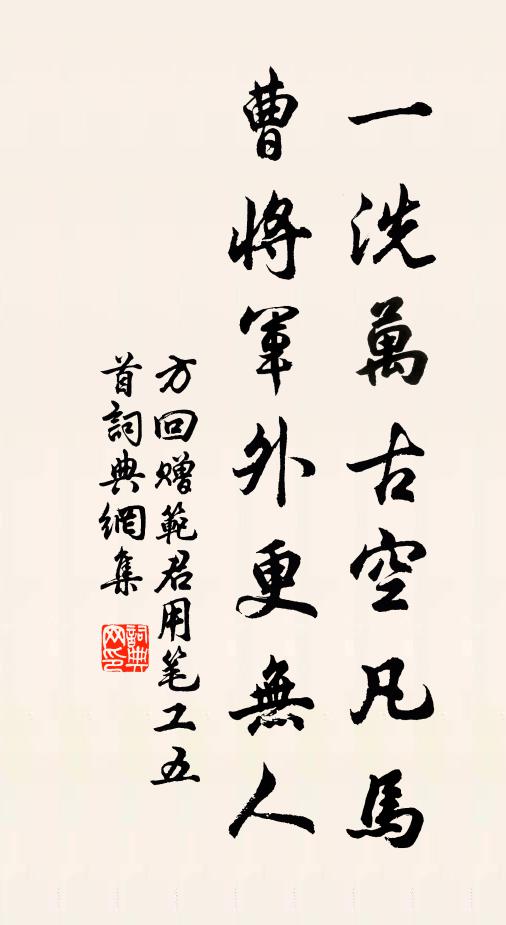 一洗萬古空凡馬
曹將軍外更無人
方回赠範君用笔工五
首詞典網集
詞典网印